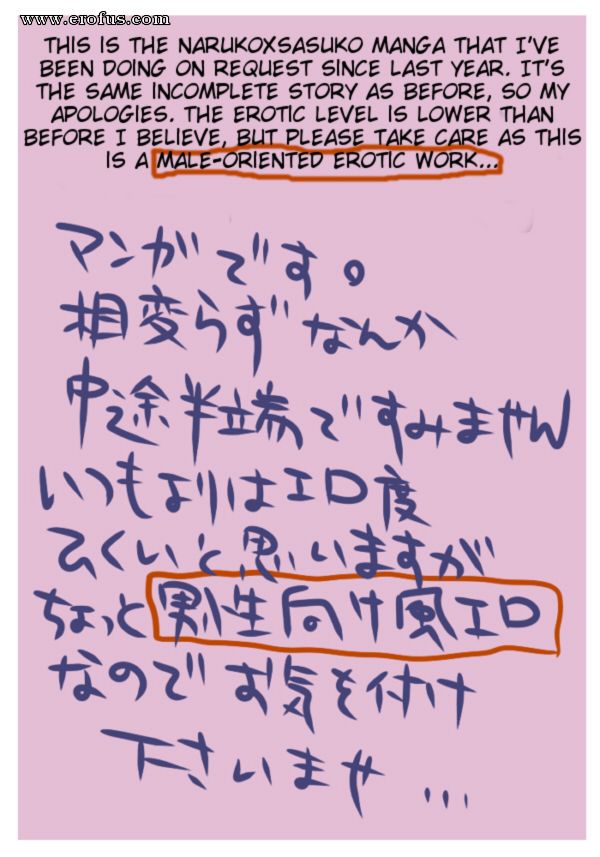 www.erofus.com
THIS IS THE NARUKOXSASUKO MANGA THAT I'VE
BEEN DOING ON REQUEST SINCE LAST YEAR. IT'S
THE SAME INCOMPLETE STORY AS BEFORE, SO MY
APOLOGIES. THE EROTIC LEVEL IS LOWER THAN
BEFORE I BELIEVE, BUT PLEASE TAKE CARE AS THIS
IS A MALE-ORIENTED EROTIC WORK...
マンガです。
相変らずなんか
中途半端ですみません
いつもよりはエロ度
ひくいと思いますが
ちょっと男性向け風エロ
なのでお気を付け
下さいませ...